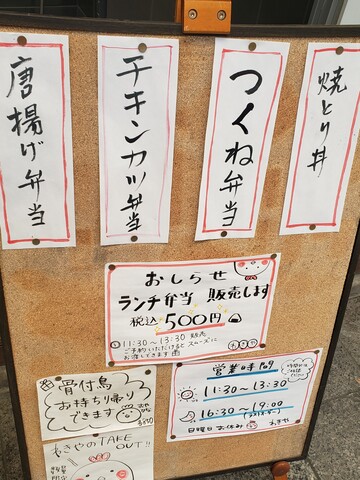 唐揚げ弁当
チキンカツ弁当
つくね弁当
焼とり丼
おしらせ
ランチ弁当 販売します
税込 500円
11:30~13:30 販売
ご予約いただけるとスムーズに
お渡しできます
骨付鳥
お持ち帰り
できます
営業時間
11:30~13:30
16:30~19:00
日曜日お休み
あきや
あきやのTAKE
OUT!!